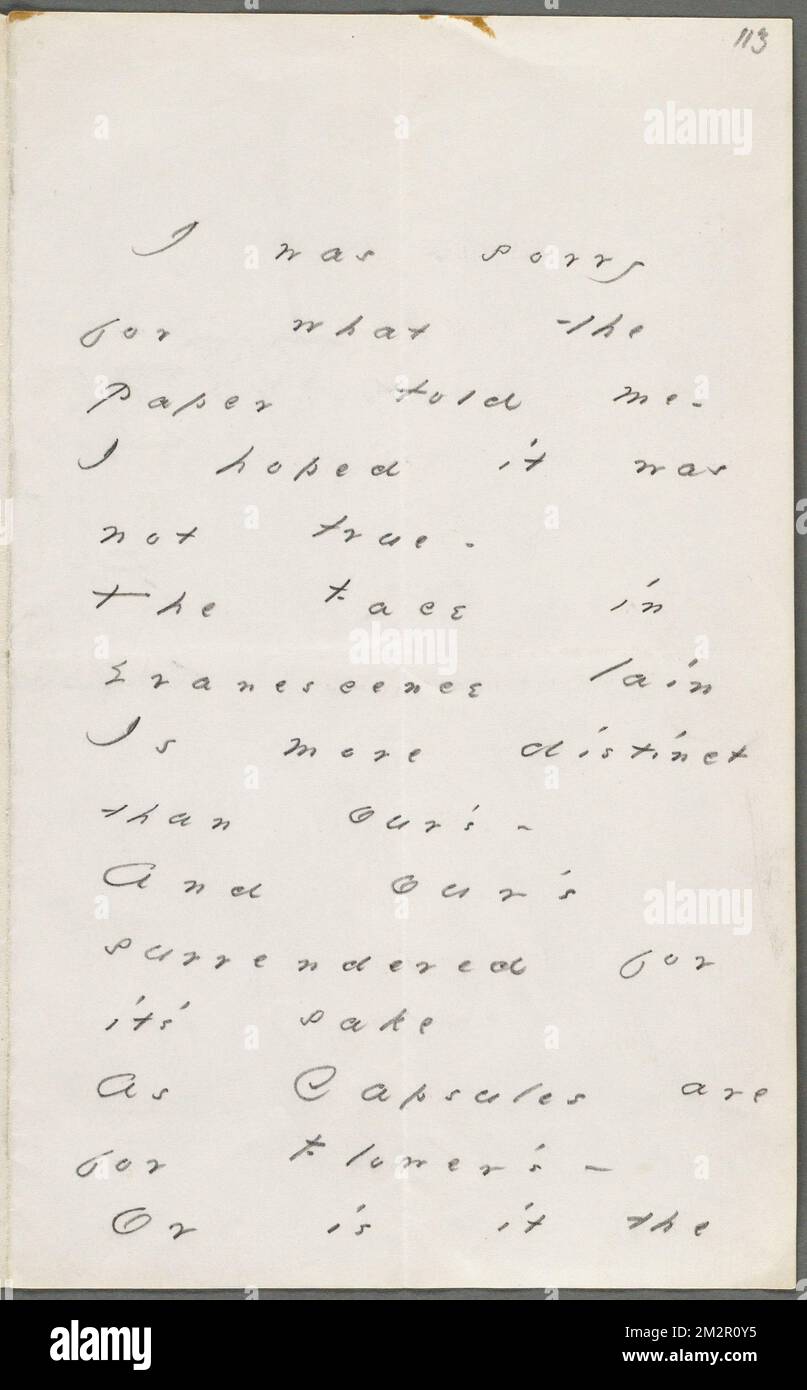 113
I was sorry
for what the
Paper told me -
I hoped it was
not true -
The Face in
Evanescence lain
Is more distinct
than Our's -
And Our's
surrendered for
it's sake
As Capsules are
for Flower's -
Or is it the
alamy
Image ID: 2M2R0Y5
www.alamy.com